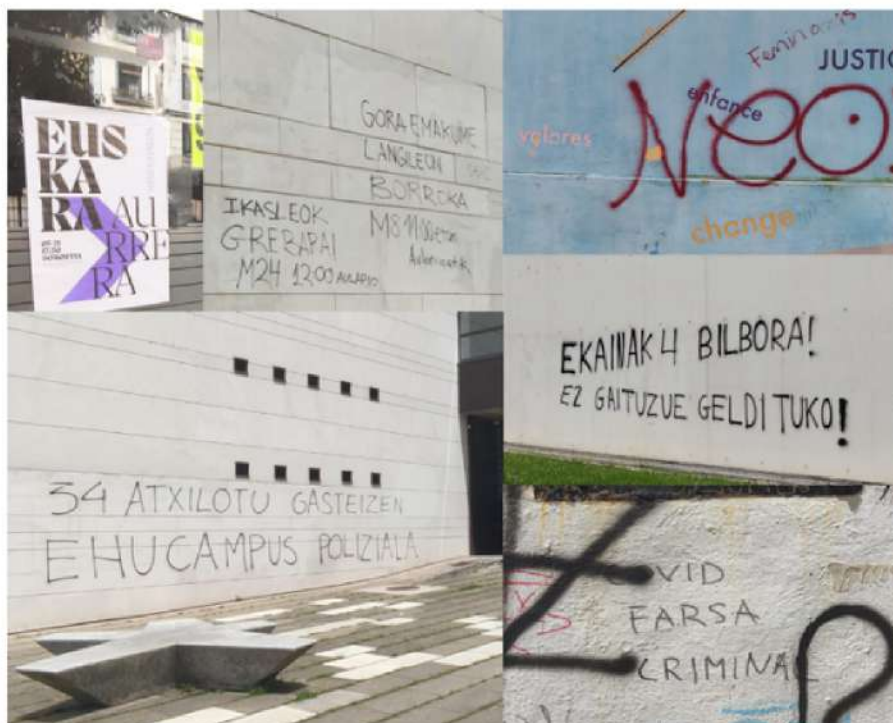 EUS
KA
RA
AU
RRE
RA
GORA EMAKUME
LANGILEON
BORROKA
M8 11:00etan
IKASLEOK
GREBARA!
M24 12:00 AULARIO
Feminomis
JUSTIC
enfance
NEO.
valores
change
EKAINAK 4 BILBORA!
EZ GAITUZUE GELDITUKO!
34 ATXILOTU GASTEIZEN
EHU CAMPUS POLIZIALA
COVID
FARSA
CRIMINAL